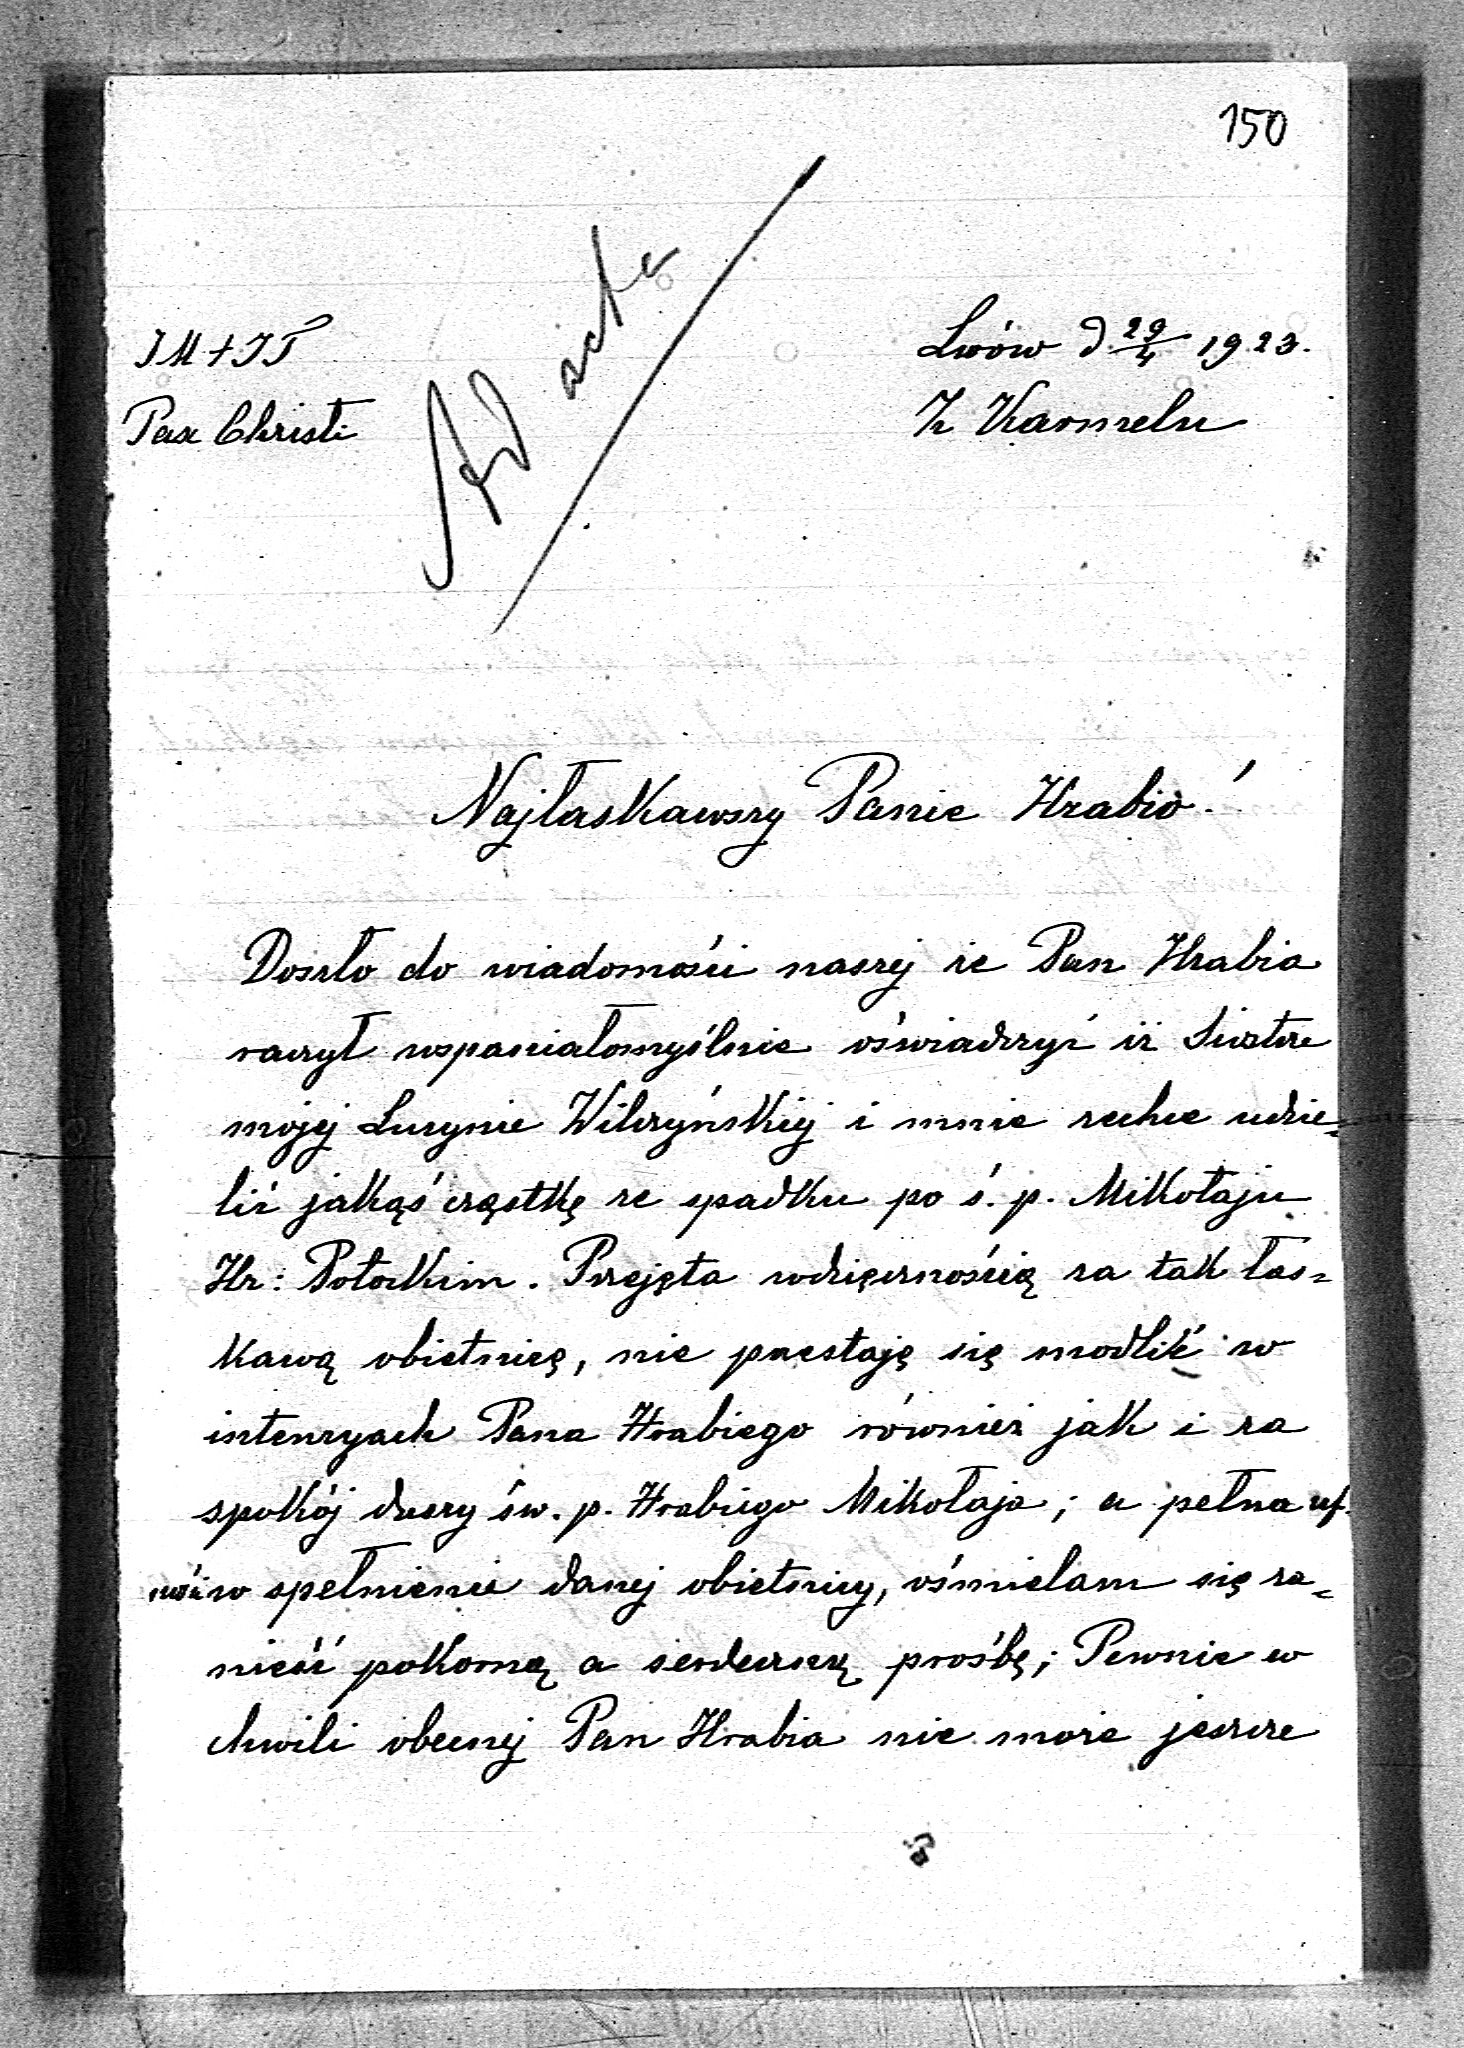 150
Ad acta
JM+JT
Lwów d. 29/4 1923.
Pax Christi
Z Karmelu
Najłaskawszy Panie Hrabio!
Doszło do wiadomości naszej że Pan Hrabia
raczył wspaniałomyślnie oświadczyć iż Siostrze
mojej Lucynie Wilczyńskiej i mnie zechce udzie=
lić jakąś cząstkę ze spadku po ś. p. Mikołaju
Hr: Potockim. Przejęta wdzięcznością za tak łas=
kawą obietnicę, nie przestaję się modlić w
intenzyach Pana Hrabiego również jak i za
spokój duszy św. p. Hrabiego Mikołaja; a pełna uf.
ności w spełnienie danej obietnicy, ośmielam się za=
nieść pokorną a serdeczną prośbę; Pewnie w
chwili obecnej Pan Hrabia nie może jeszcze